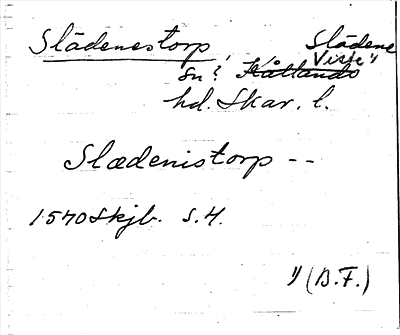 Slädenestorp Slädene
sn? Kållands Viste "
hd. Skar. l.
Slædenistorp --
1570 Skjb. s.4.
" (B.F.)